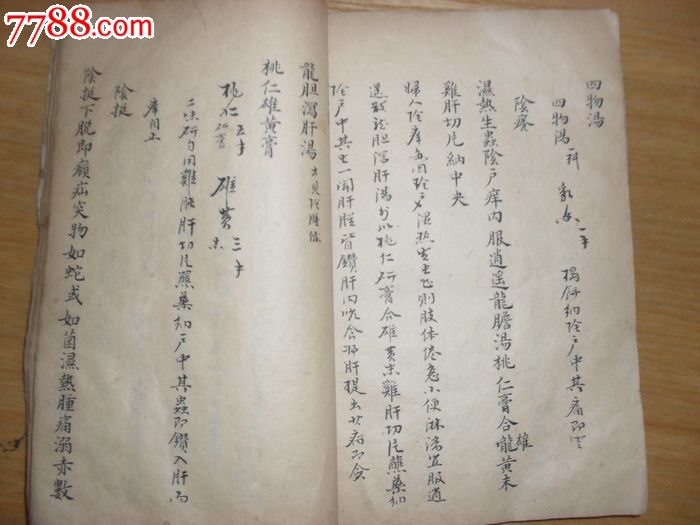 7788.com
四物湯
四物湯 一料 乳香 一才 搗餅納陰戶中其痛即定
陰癢
濕熱生蟲陰戶痒內服逍遥龍膽湯桃仁膏合雄黃末
雞肝切片納中央
婦人陰痒多因陰戶湿熱生虫甚則肢体倦怠小便淋瀝宜服逍
遥散龍胆瀉肝湯外以桃仁研膏合雄黄末雞肝切片蘸藥納
陰戶中其虫一聞肝腥皆鑽肝內吮食將肝提出其病即愈
龍胆瀉肝湯
桃仁雄黃膏
桃仁 研膏 五才 雄黄 末 三才
二味研勻用雞肝切片蘸藥納戶中其蟲即鑽入肝內
痒自止
陰挺
陰挺下脱即癩疝突物如蛇或如菌濕熱腫痛溺赤數